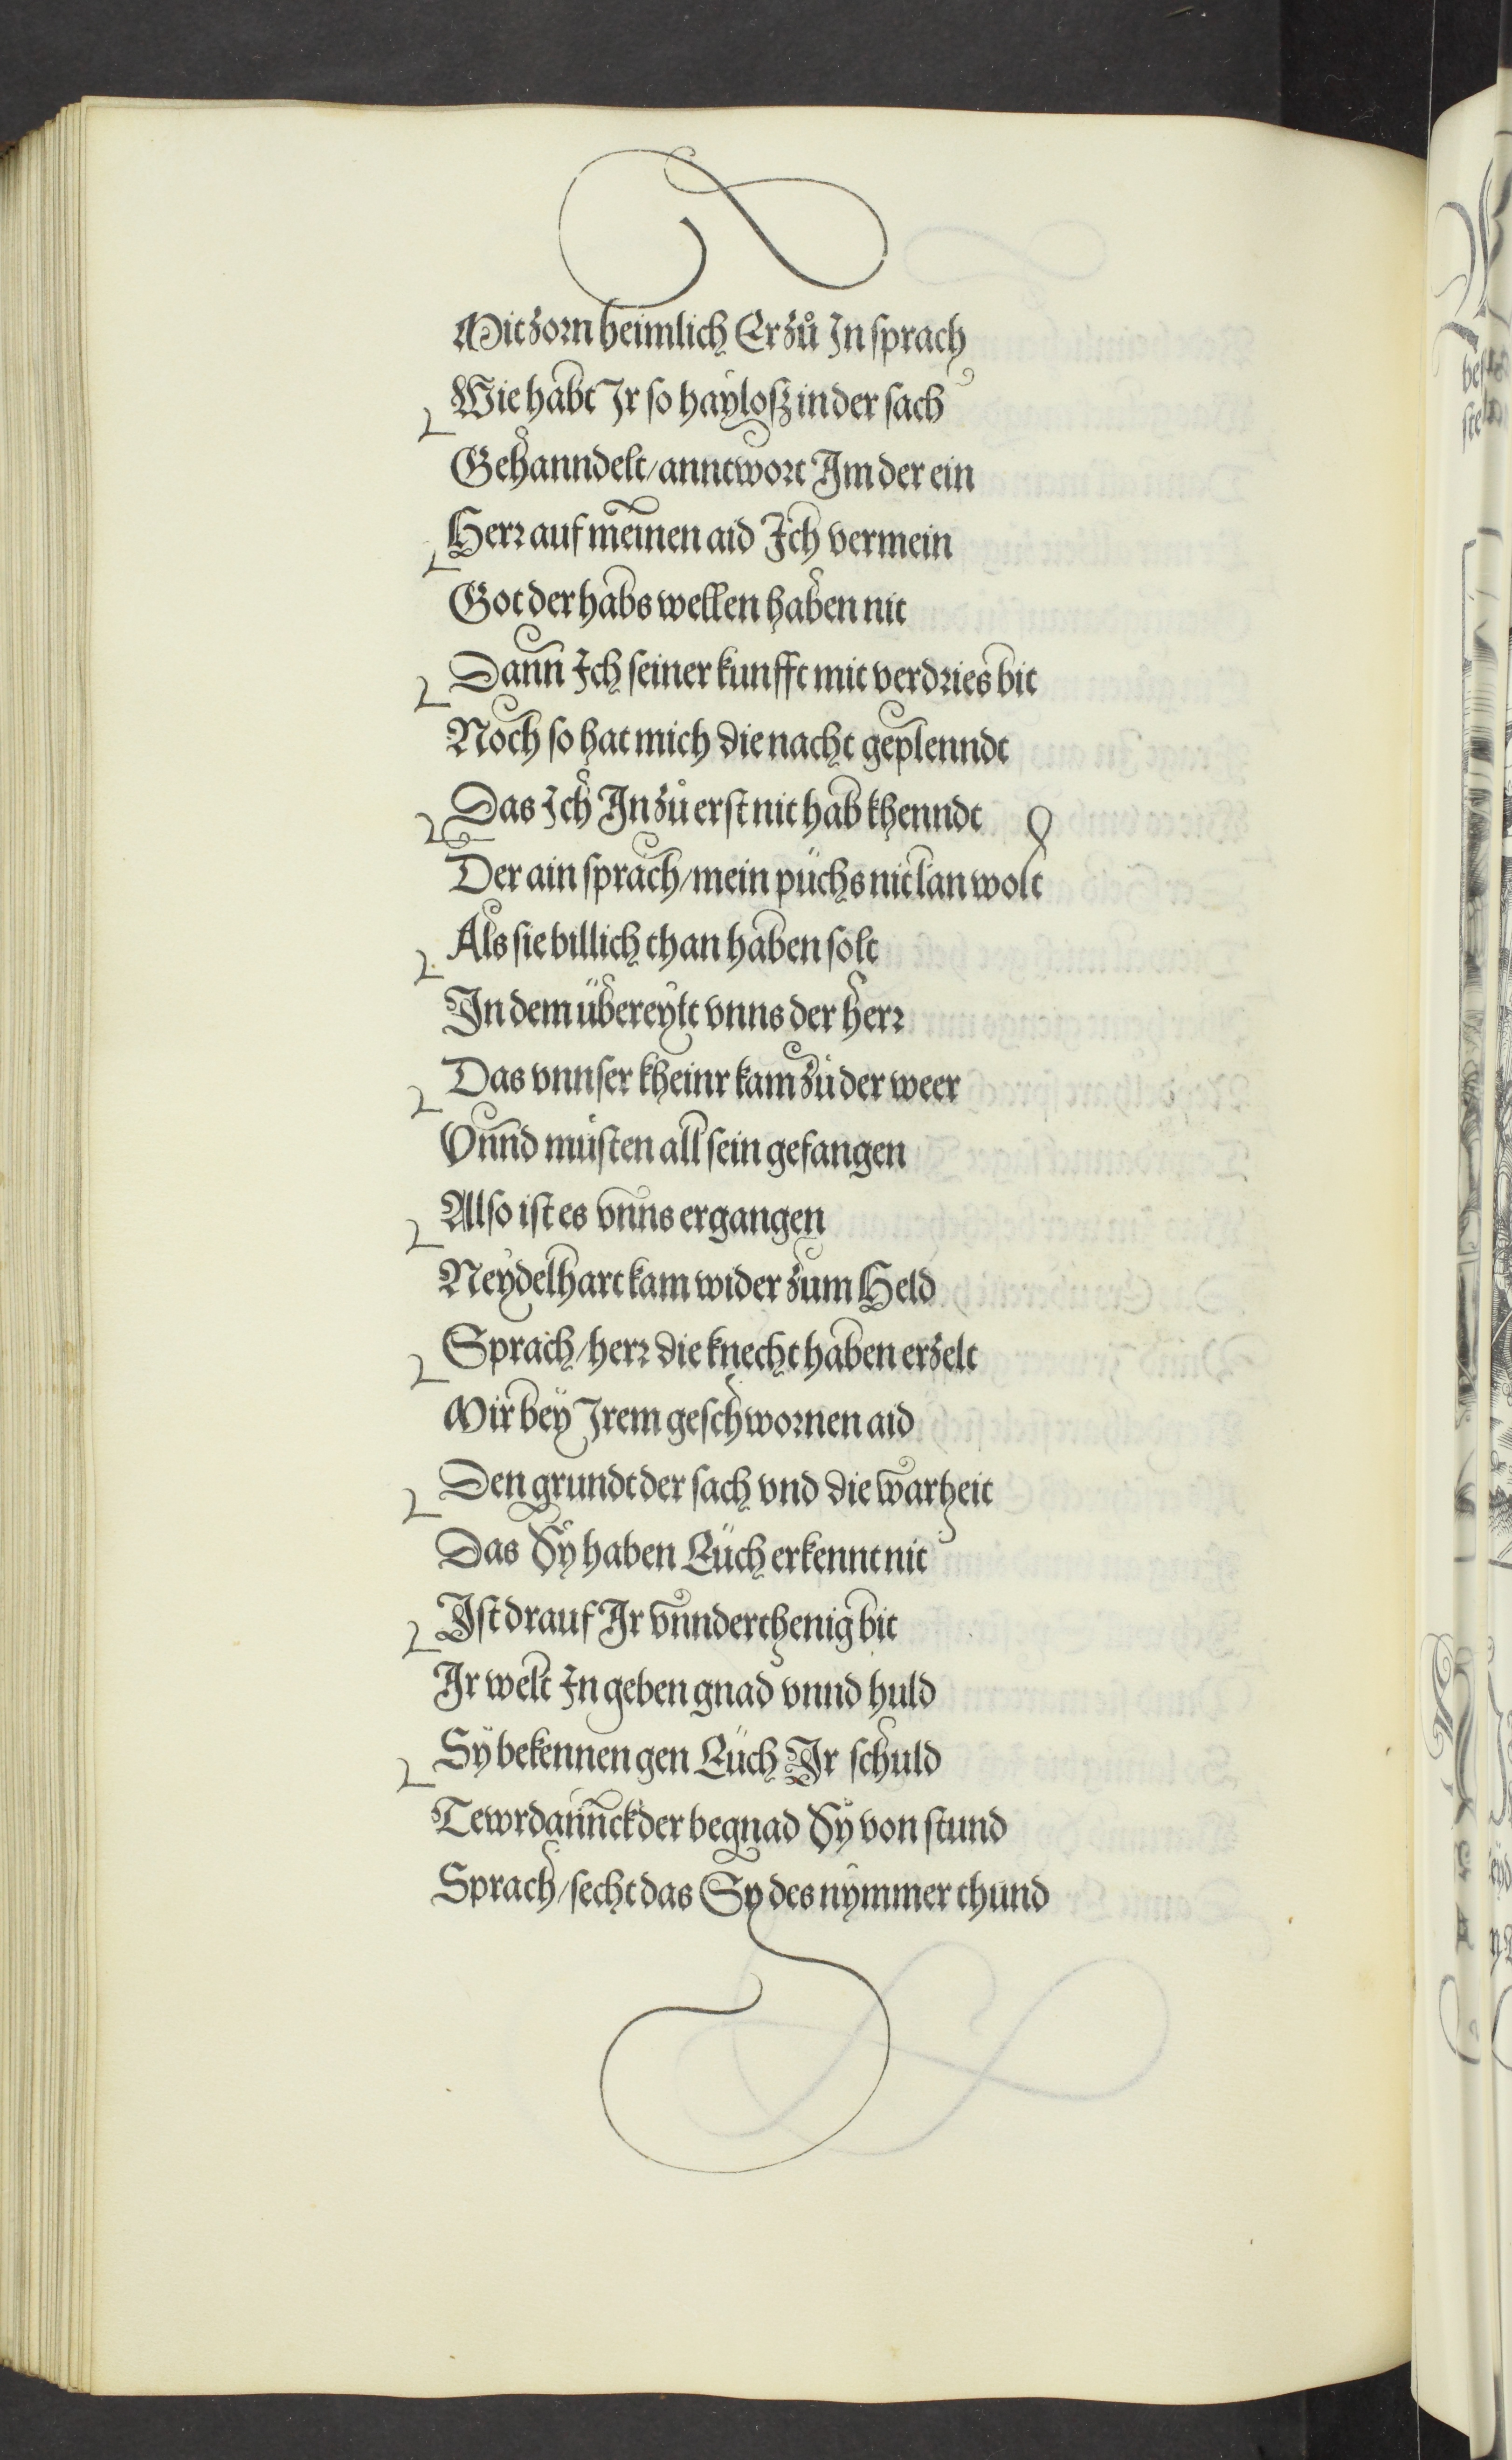 Mit zorn heimlich Er zů In sprach
Wie habt Ir so hayloß in der sach
Gehanndelt / anntwort Im der ein
Herr auf meinen aid Ich vermein
Got der habs wellen haben nit
Dann Ich seiner kunfft mit verdries bit
Noch so hat mich die nacht geplenndt
Das Ich In zů erst nit hab khenndt
Der ain sprach / mein püchs nit lan wolt
Als sie billich than haben solt
In dem übereylt vnns der herr
Das vnnser kheinr kam zů der weer
Vnnd můsten all sein gefangen
Also ist es vnns ergangen
Neydelhart kam wider zum Held
Sprach / herr die knecht haben erzelt
Mir bey Irem geschwornen aid
Den grundt der sach vnd die warheit
Das Sy haben Eüch erkennt nit
Ist drauf Ir vnnderthenig bit
Ir welt In geben gnad vnnd huld
Sy bekennen gen Eüch Ir schuld
Tewrdannck der begnad Sy von stund
Sprach / secht das Sy des nymmer thund